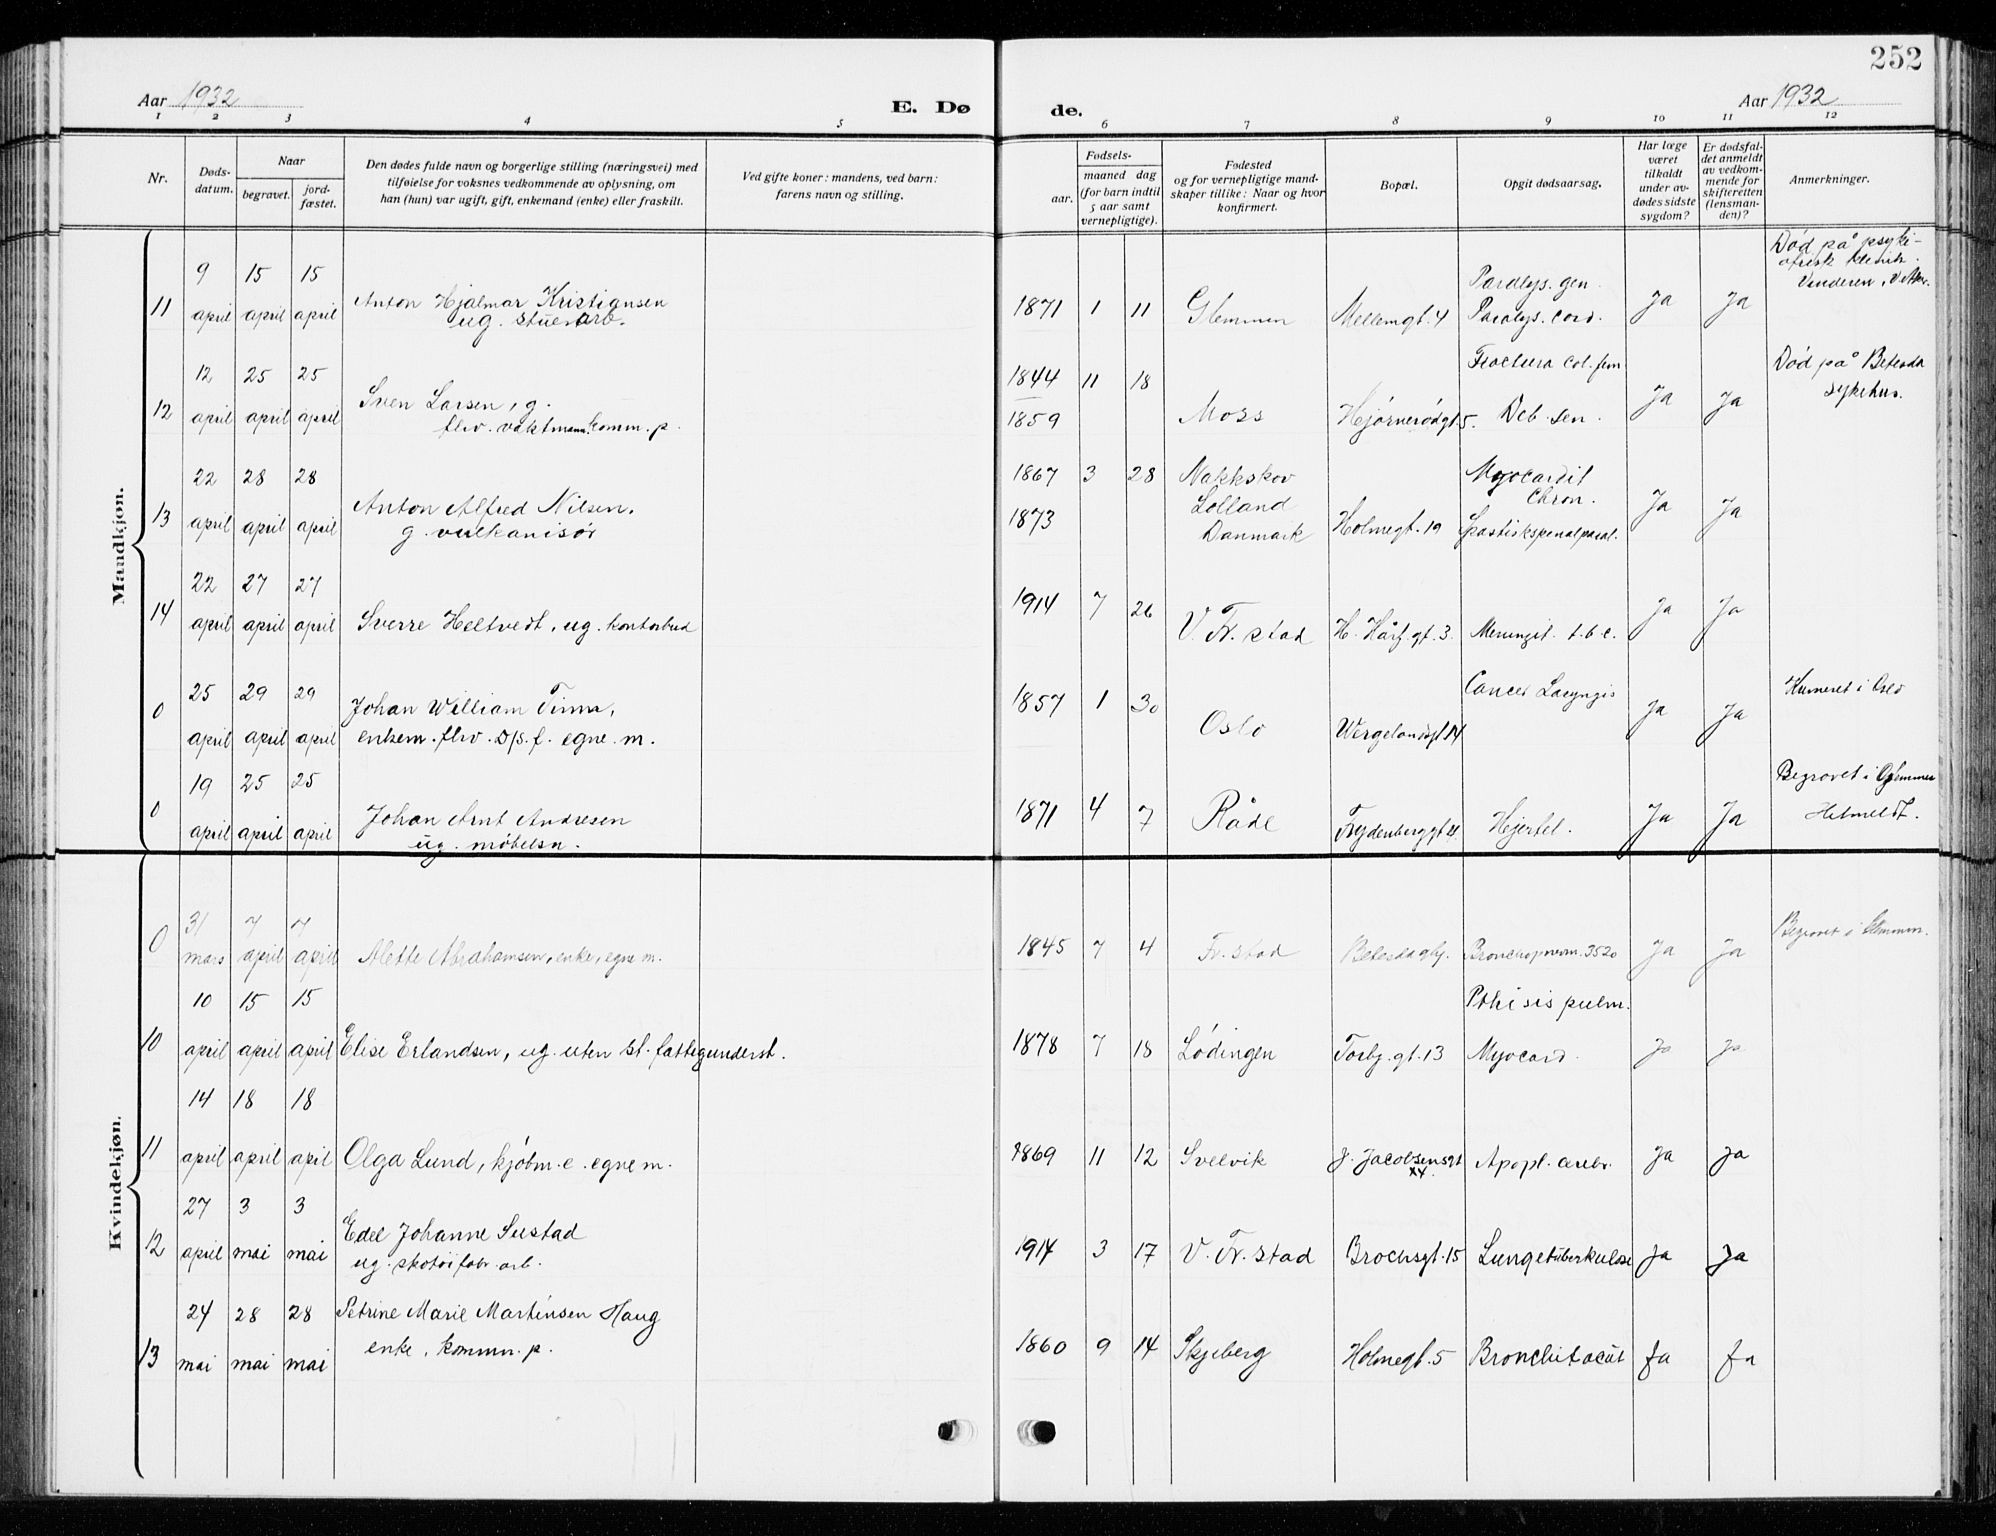 252
Aar 1932
E. Dø
de.
Aar 1932
1 2 3 4 5 6 7 8 9 10 11 12
Nr.
Døds-
datum.
Naar
begravet.
jord-
fæstet.
Den dødes fulde navn og borgerlige stilling (næringsvei) med
tilføielse for voksnes vedkommende av oplysning, om
han (hun) var ugift, gift, enkemand (enke) eller fraskilt.
Ved gifte koner: mandens, ved barn:
farens navn og stilling.
aar.
Fødsels-
maaned dag
(for barn indtil
5 aar samt
vernepligtige).
Fødested
og for vernepligtige mand-
skaper tillike: Naar og hvor
konfirmert.
Bopæl.
Opgit dødsaarsag.
Har læge
været
tilkaldt
under av-
dødes sidste
sygdom?
Er dødsfal-
det anmeldt
av vedkom-
mende for
skifteretten
(lensman-
den)?
Anmerkninger.
Mandkjøn.
Død på psyki-
atrisk klinik
9 15 15 Paralys. gen. Vinderen, V. Aker.
11 april april april Anton Hjalmar Kristiansen 1871 1 11 Glemmen Mellemgt. 4 Paralys. cord. Ja Ja
ug. stuerarb.
12 25 25 1844 11 18 Fractura col. fem Død på Betesda
12 april april april Sven Larsen, g. 1859 Moss Hjørnerødgt. 5. Deb. sen. Ja Ja sykehus.
flrv. vaktmann. komm. p.
22 28 28 1867 3 28 Nakkskov Myocardit
13 april april april Anton Alfred Nilsen, 1873 Lolland Chron. Ja Ja
g. vulkanisør Danmark Holmegt. 19 Spastisk spinalparal.
22 27 27 1914 7 26
14 april april april Sverre Heltvedt, ug. kontorbud V. Fr. stad H. Hårf. gt. 3. Meningit. t.b.c. Ja Ja
25 29 29 1857 1 30 Cancer Laryngis Kremeret i Oslo
0 april april april Johan William Timm, Oslo Wergelandsgt 14 Ja Ja
enkem. flrv. D/S. f. egne. m.
19 25 25 Begravet i Glemmen
0 april april april Johan Arnt Andresen 1871 4 7 Råde Frydenberggt 21 Hjertel. Ja Ja Helmeldt.
ug. møbelsn.
Kvindekjøn.
31 7 7 Begravet i Glemmen.
0 mars april april Alette Abrahamsen, enke, egne m. 1845 7 4 Fr. stad Betesda ghj. Bronchopnevm. 3520 Ja Ja
10 15 15 Pthisis pulm.
10 april april april Elise Erlandsen, ug. uten st. fattigunderst. 1878 7 18 Lødingen Torbj. gt. 13 Myocard. Ja Ja
14 18 18
11 april april april Olga Lund, kjøbm. e. egne m. 1869 11 12 Svelvik J. Jacobsensgt Apopl. cerebr. Ja Ja
27 3 3
12 april mai mai Edel Johanne Sustad 1914 3 17 V. Fr. stad Brochsgt. 15 Lungetuberkulose Ja Ja
ug. skotøifabr. arb.
24 28 28 Petrine Marie Martinsen Haug
13 mai mai mai enke, kommn. p. 1860 9 14 Skjeberg Holmegt. 5 Bronchit acut Ja Ja